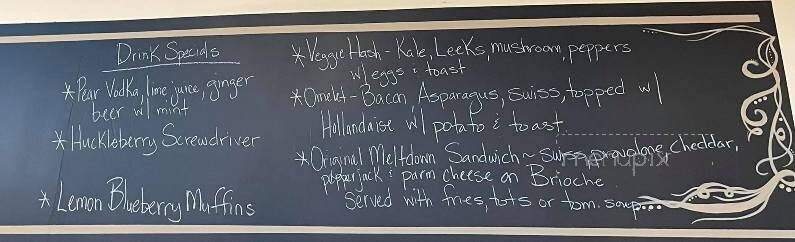 Drink Specials
*Pear Vodka, lime juice, ginger
beer w/ mint
*Huckleberry Screwdriver
*Lemon Blueberry Muffins
*Veggie Hash - Kale, Leeks, mushroom, peppers
w/ eggs & toast
*Omelet - Bacon, Asparagus, Swiss, topped w/
Hollandaise w/ potato & toast
*Original Meltdown Sandwich ~ Swiss, provolone, cheddar,
pepperjack & parm cheese on Brioche
Served with fries, tots or tom. soup...
menupix